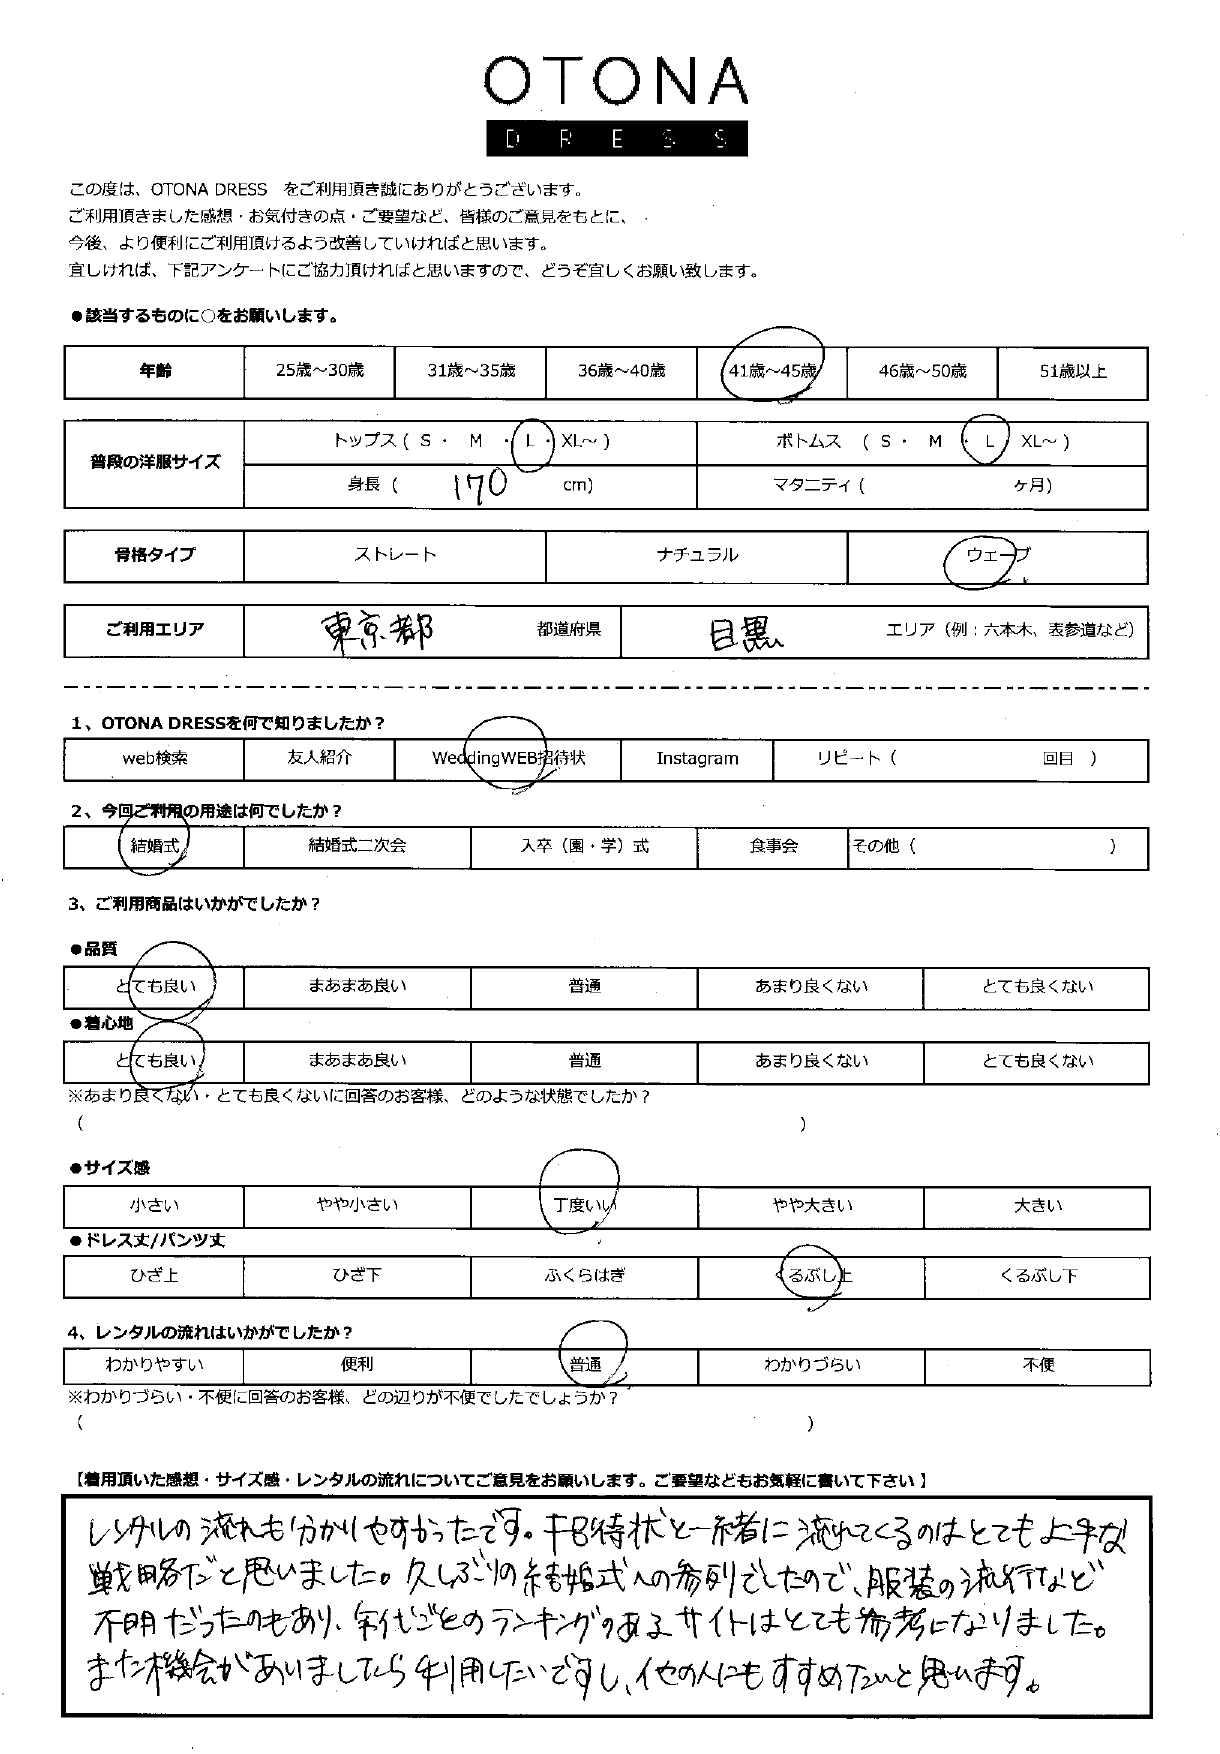 OTONA
DRESS
この度は、OTONA DRESS をご利用頂き誠にありがとうございます。
ご利用頂きました感想・お気付きの点・ご要望など、皆様のご意見をもとに、
今後、より便利にご利用頂けるよう改善していければと思います。
宜しければ、下記アンケートにご協力頂ければと思いますので、どうぞ宜しくお願い致します。
●該当するものに○をお願いします。
年齢 25歳～30歳 31歳～35歳 36歳～40歳 41歳～45歳 46歳～50歳 51歳以上
普段の洋服サイズ トップス ( S ・ M ・ L ・ XL～ ) ボトムス ( S ・ M ・ L XL～ )
身長 ( 170 cm) マタニティ ( ヶ月)
骨格タイプ ストレート ナチュラル ウェーブ
ご利用エリア 東京都 都道府県 目黒 エリア（例：六本木、表参道など）
1、OTONA DRESSを何で知りましたか？
web検索 友人紹介 WeddingWEB招待状 Instagram リピート ( 回目 )
2、今回ご利用の用途は何でしたか？
結婚式 結婚式二次会 入卒（園・学）式 食事会 その他 ( )
3、ご利用商品はいかがでしたか？
●品質
とても良い まあまあ良い 普通 あまり良くない とても良くない
●着心地
とても良い まあまあ良い 普通 あまり良くない とても良くない
※あまり良くない・とても良くないに回答のお客様、どのような状態でしたか？
( )
●サイズ感
小さい やや小さい 丁度いい やや大きい 大きい
●ドレス丈/パンツ丈
ひざ上 ひざ下 ふくらはぎ くるぶし上 くるぶし下
4、レンタルの流れはいかがでしたか？
わかりやすい 便利 普通 わかりづらい 不便
※わかりづらい・不便に回答のお客様、どの辺りが不便でしたでしょうか？
( )
【着用頂いた感想・サイズ感・レンタルの流れについてご意見をお願いします。ご要望などもお気軽に書いて下さい】
レンタルの流れも分かりやすかったです。招待状と一緒に流れてくるのはとても上手な
戦略だと思いました。久しぶりの結婚式への参列でしたので、服装の流行など
不明だったのもあり、年代ごとのランキングのあるサイトはとても参考になりました。
また機会がありましたら利用したいですし、他の人にもすすめたいと思います。